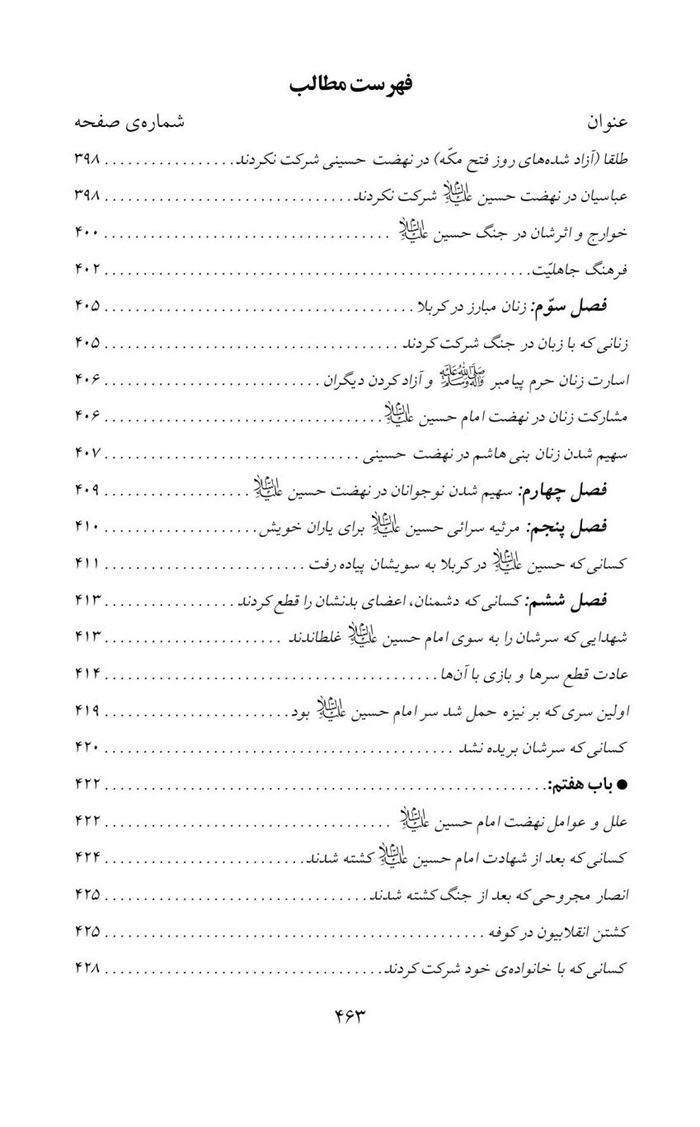 فهرست مطالب
عنوان شماره‌ی صفحه
طلقا (آزاد شده‌های روز فتح مکّه) در نهضت حسینی شرکت نکردند ................. ۳۹۸
عباسیان در نهضت حسین علیه‌السلام شرکت نکردند ................................ ۳۹۸
خوارج و اثرشان در جنگ حسین علیه‌السلام ..................................... ۴۰۰
فرهنگ جاهلیّت .................................................... ۴۰۲
فصل سوّم: زنان مبارز در کربلا .................................... ۴۰۵
زنانی که با زبان در جنگ شرکت کردند .................................. ۴۰۵
اسارت زنان حرم پیامبر صلی‌الله‌علیه‌وآله‌وسلم و آزاد کردن دیگران ........................... ۴۰۶
مشارکت زنان در نهضت امام حسین علیه‌السلام .................................... ۴۰۶
سهیم شدن زنان بنی هاشم در نهضت حسینی ................................. ۴۰۷
فصل چهارم: سهیم شدن نوجوانان در نهضت حسین علیه‌السلام ..................... ۴۰۹
فصل پنجم: مرثیه سرائی حسین علیه‌السلام برای یاران خویش ...................... ۴۱۰
کسانی که حسین علیه‌السلام در کربلا به سویشان پیاده رفت .......................... ۴۱۱
فصل ششم: کسانی که دشمنان، اعضای بدنشان را قطع کردند ................... ۴۱۳
شهدایی که سرشان را به سوی امام حسین علیه‌السلام غلطاندند ....................... ۴۱۳
عادت قطع سرها و بازی با آن‌ها .......................................... ۴۱۴
اولین سری که بر نیزه حمل شد سر امام حسین علیه‌السلام بود ........................ ۴۱۹
کسانی که سرشان بریده نشد ......................................... ۴۲۰
● باب هفتم: .................................................... ۴۲۲
علل و عوامل نهضت امام حسین علیه‌السلام ..................................... ۴۲۲
کسانی که بعد از شهادت امام حسین علیه‌السلام کشته شدند .......................... ۴۲۴
انصار مجروحی که بعد از جنگ کشته شدند ................................. ۴۲۵
کشتن انقلابیون در کوفه ............................................. ۴۲۵
کسانی که با خانواده‌ی خود شرکت کردند .................................... ۴۲۸
۴۶۳